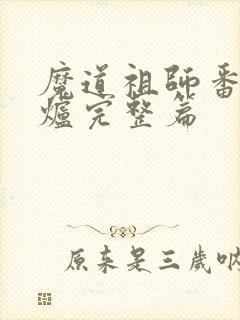 魔道祖師番
爐完整篇
原来是三歲呐